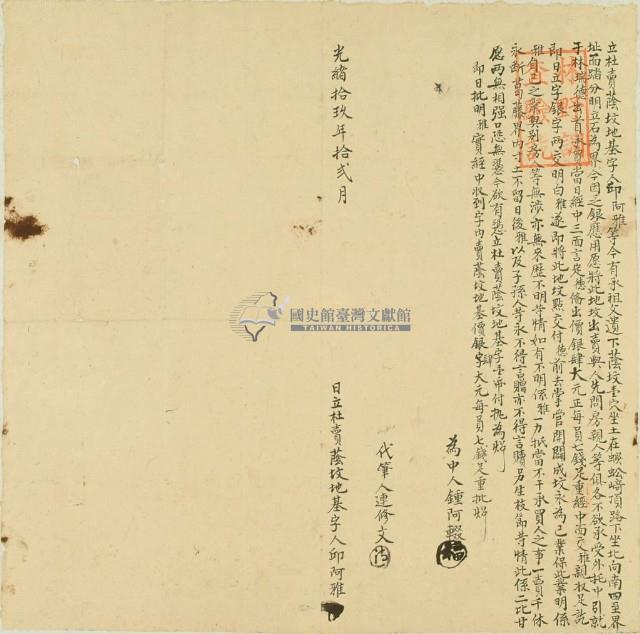 立杜賣蔭坟地基字人邱阿雅等今有承祖父遺下蔭坟壹穴坐土在蜈蚣崎頂路下坐北向南四至界
址面踏分明立石為界今因乏銀應用愿將此地坟出賣與人先問房親人等俱各不欲承受外托中引就
于林瑞德出首承買當日經中三面言定德備出價銀肆大元正每員七錢足重經中面交雅親收足訖
即日立字銀字兩交明白雅遂即將此地坟點交付德前去掌管開闢成坟永為己業保此業明係
雅自己之業與別房人等無涉亦無來歷不明等情如有不明係雅一力抵當不干承買人之事一賣千休
永斷葛藤界內寸土不留日後雅以及子孫人等永不得言贈亦不得言贖另生枝節等情此係二比甘
愿兩無相强口恐無憑今欲有憑立杜賣蔭坟地基字壹帋付執為炤
即日批明雅實經中收到字內賣蔭坟地基價銀肆大元每員七錢足重批炤
為中人鍾阿輟
代筆人連修文
光緒拾玖年拾貳月
日立杜賣蔭坟地基字人邱阿雅
國史館臺灣文獻館
TAIWAN HISTORICA